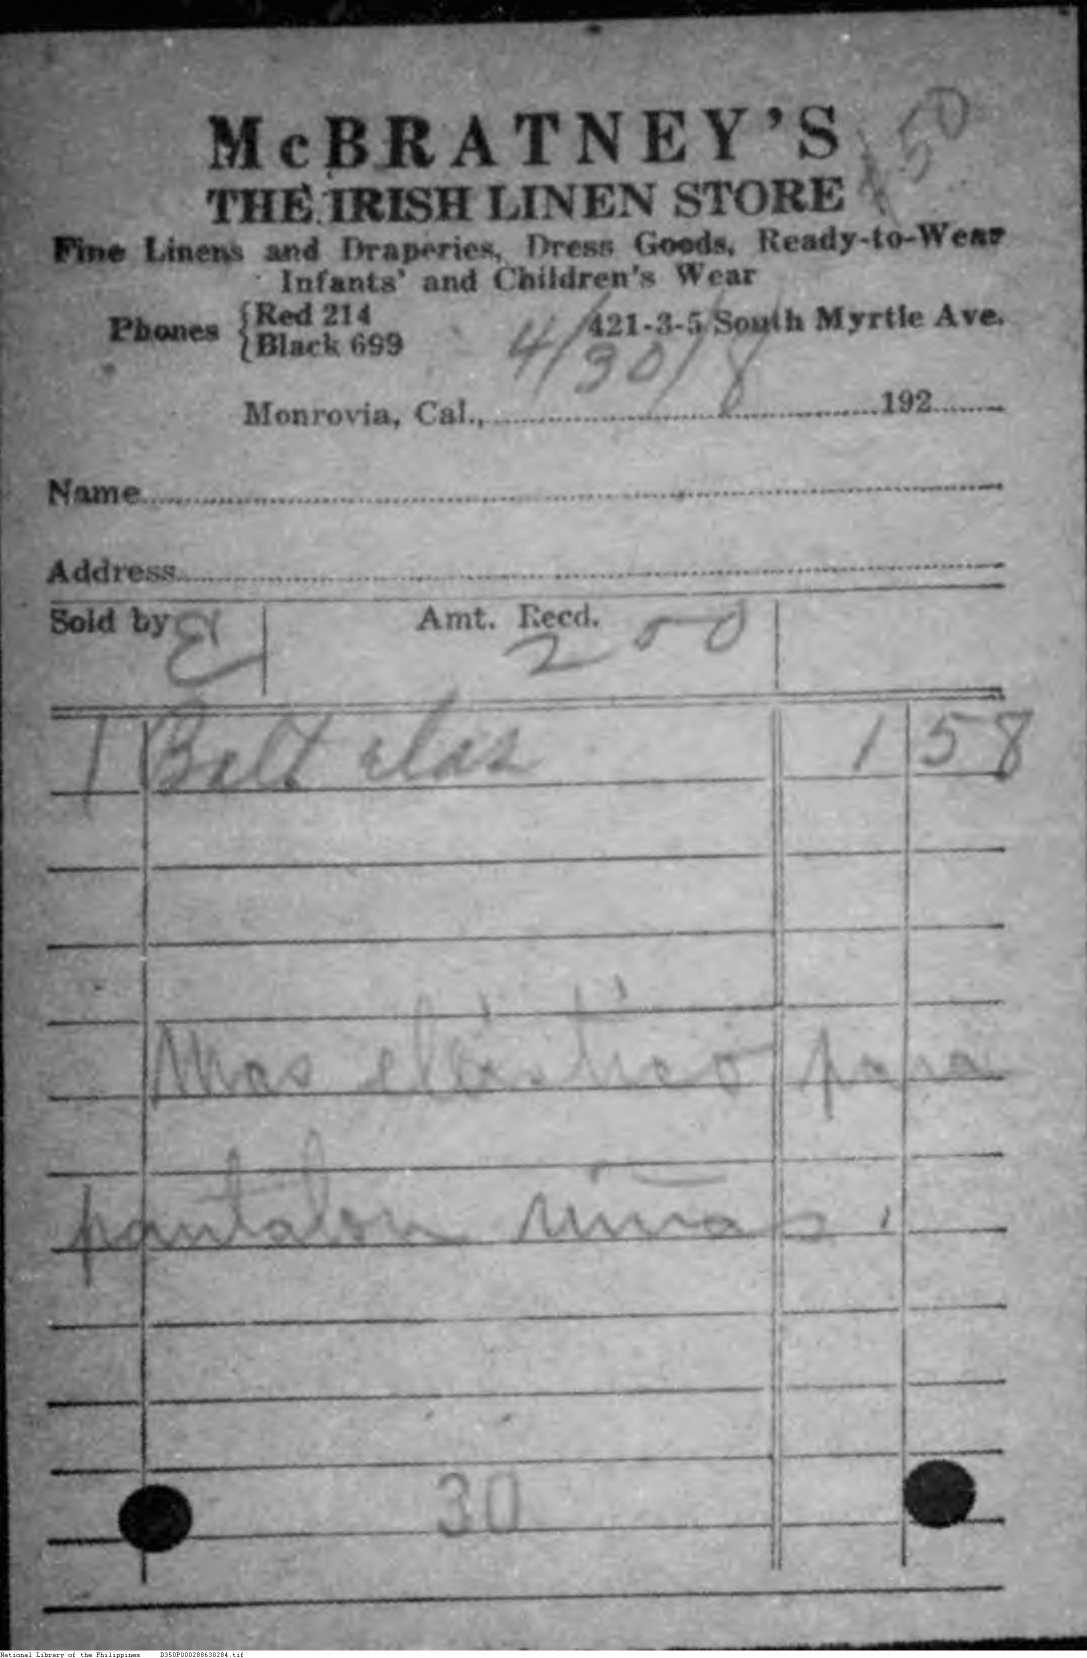 50
McBRATNEY'S
THE IRISH LINEN STORE
Fine Linens and Draperies, Dress Goods, Ready-to-Wear
Infants' and Children's Wear
Phones {Red 214
{Black 699
421-3-5 South Myrtle Ave.
4/30/8
Monrovia, Cal., 192
Name
Address
Sold by E Amt. Recd. 2 00
1 Belt elas 1 58
Mas elástico para
pantalon niñas.
30
National Library of the Philippines D350P000288630284.tif